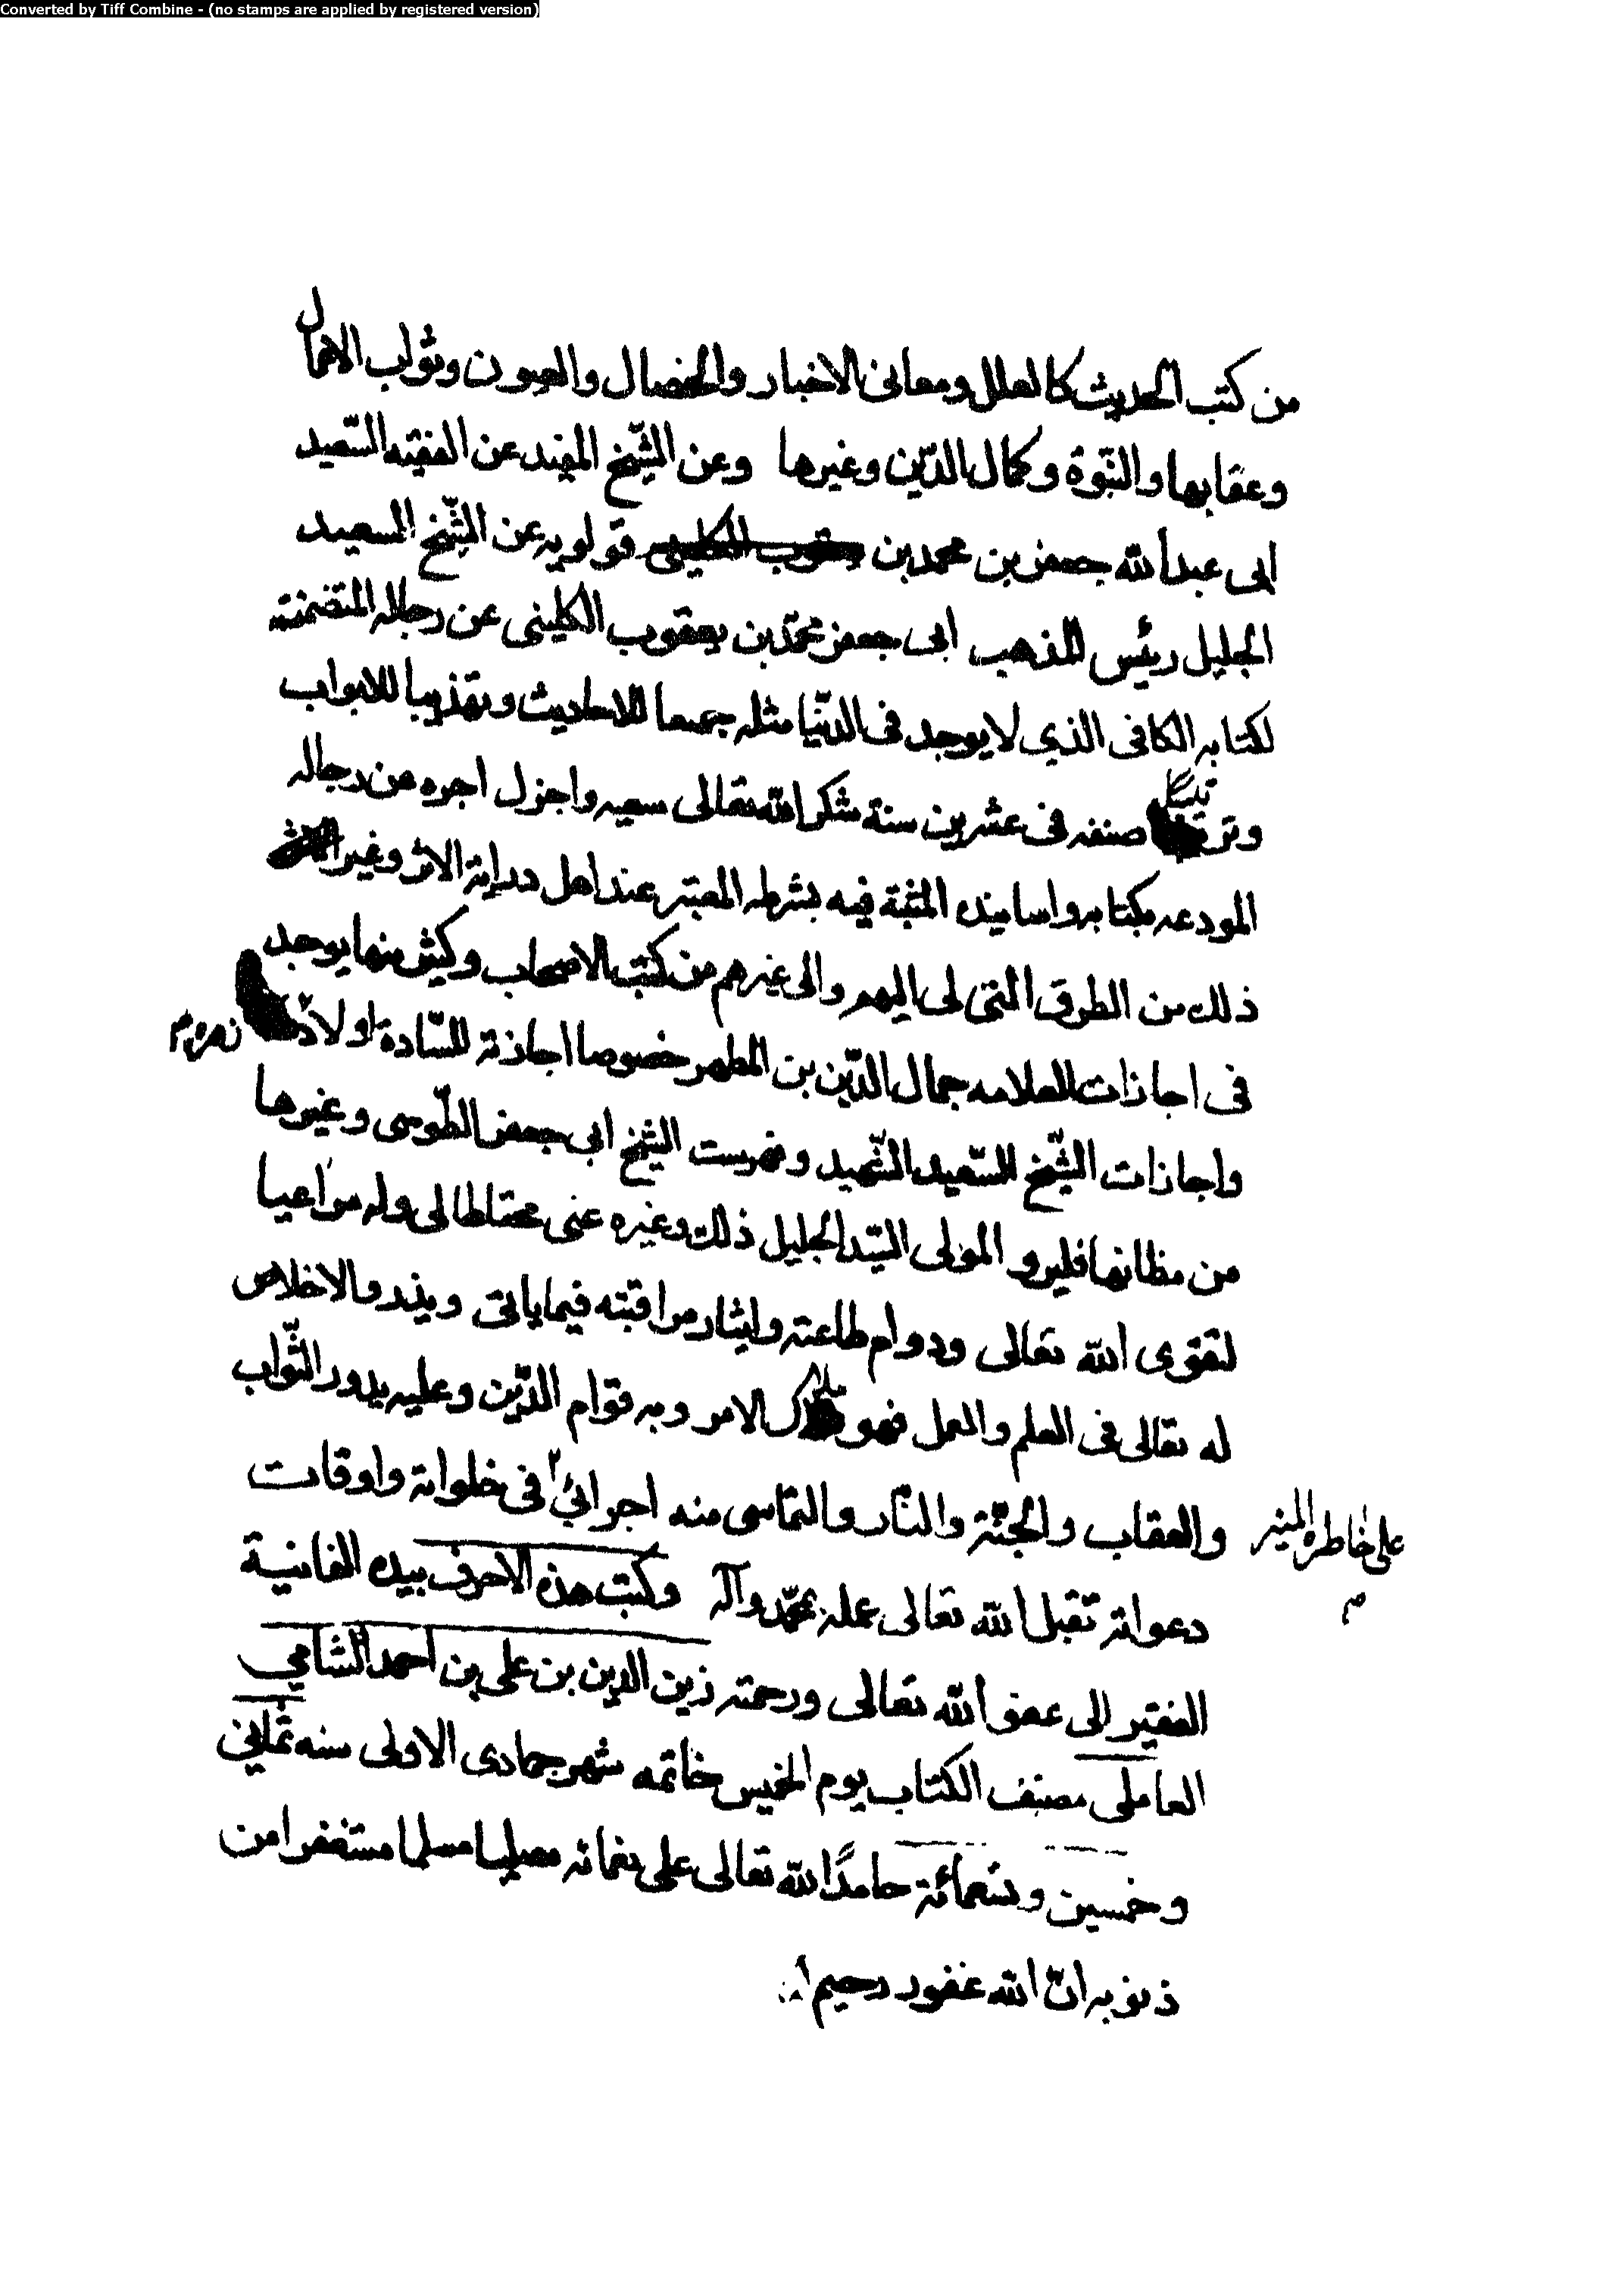 Converted by Tiff Combine - (no stamps are applied by registered version)
من كتب الحديث كالعلل ومعانى الاخبار والخصال والعيون وثواب الاعمال
وعقابها والنبّوة وكمال الدّين وغيرها وعن الشّيخ المفيد عن الفقيه السّعيد
ابى عبدالله جعفر بن محمد بن قولويه عن الشّيخ السعيد
الجليل رئيس المذهب ابى جعفر محمّد بن يعقوب الكلينى عن رجاله المتضمنة
لكتابه الكافى الذي لا يوجد فى الدّنيا مثله جمعا للاحاديث وتهذيبا للابواب
وترتيبا صنفه فى عشرين سنة شكر الله تعالى سعيه واجزل اجره عن رجاله
المودعه بكتابه واسانيده المثبتة فيه بشرطه المعتبر عند اهل دراية الاثر وغير
ذلك من الطرق التى لى اليهم والى غيرهم من كتب الاصحاب وكثير منها يوجد
فى اجازات العلامه جمال الدّين بن المطهر خصوصا اجازته للسّادة اولاد زهره م
واجازات الشّيخ السّعيد الشّهيد وفهرست الشيخ ابى جعفر الطّوسى وغيرها
من مظانها فليرو المولى السّيد الجليل ذلك وغيره عنى محتاطا لى وله مراعيا
لتقوى الله تعالى ودوام طاعته وايثار مراقبته فيما ياتى ويذر والاخلاص
له تعالى فى العلم والعمل فهو ملاك الامر وبه قوام الدّين وعليه يدور الثّواب
والعقاب والجنّة والنّار والتماسى منه اجرائى فى خلواته واوقات
على خاطره المنير
م
دعواته تقبل الله تعالى عمله بمحمّد وآله وكتب هذه الاحرف بيده الفانية
الفقير الى عفو الله تعالى ورحمته زين الدين بن على بن احمد الشامي
العاملى مصنف الكتاب يوم الخميس خاتمه شهر جمادى الاولى سنه ثمانى
وخمسين وتسعمائة حامدًا لله تعالى على نعمائه مصليا مسلما مستغفرا من
ذنوبه انّ الله غفور رحيم